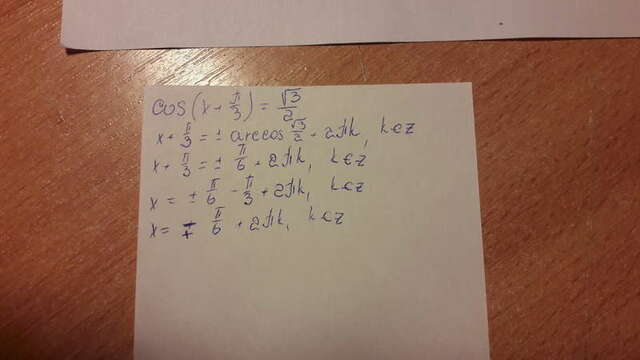 cos(x + π/3) = √3/2
x + π/3 = ± arccos √3/2 + 2πk, k ∈ z
x + π/3 = ± π/6 + 2πk, k ∈ z
x = ± π/6 - π/3 + 2πk, k ∈ z
x = ± π/6 + 2πk, k ∈ z